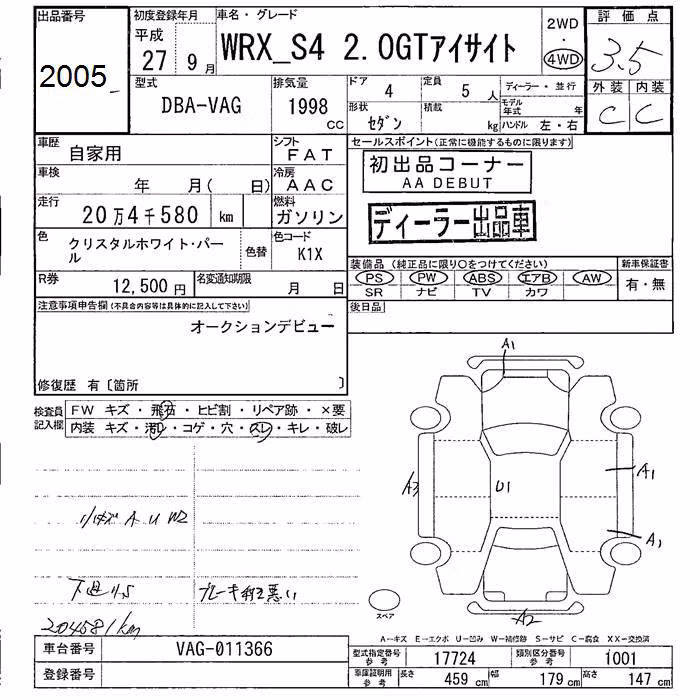 出品番号 2005
初度登録年月 平成 27年 9月
車名・グレード WRX_S4 2.0GTアイサイト
2WD・4WD
評価点 3.5
型式 DBA-VAG
排気量 1998 CC
ドア 4
定員 5人
ディーラー・並行
形状 セダン
積載 kg
モデル年式 年
ハンドル 左・右
外装 内装
C C
車歴 自家用
シフト FAT
車検 年 月( 日)
冷房 AAC
走行 20万4千580 km
燃料 ガソリン
色 クリスタルホワイト・パール
色替
色コード K1X
R券 12,500円
名変通知期限 月 日
セールスポイント(正常に機能するものに限ります)
初出品コーナー
AA DEBUT
ディーラー出品車
装備品(純正品に限り○をつけてください)
新車保証書
PS PW ABS エアB AW
有・無
SR ナビ TV カワ
後日品
注意事項申告欄(不具合内容等は具体的に記入して下さい)
オークションデビュー
修復歴 有〔箇所 〕
検査員記入欄
FW キズ・飛石・ヒビ割・リペア跡・×要
内装 キズ・汚レ・コゲ・穴・スレ・キレ・破レ
A1
A1
A3
U1
A1
A2
A U W2
下廻りS
ブレーキ利き悪い
204581km
スペア
A-キズ E-エクボ U-凹み W-補修跡 S-サビ C-腐食 XX-交換済
車台番号 VAG-011366
型式指定番号 参考 17724
類別区分番号 参考 1001
登録番号
車庫証明用 参考
長さ 459 cm
幅 179 cm
高さ 147 cm